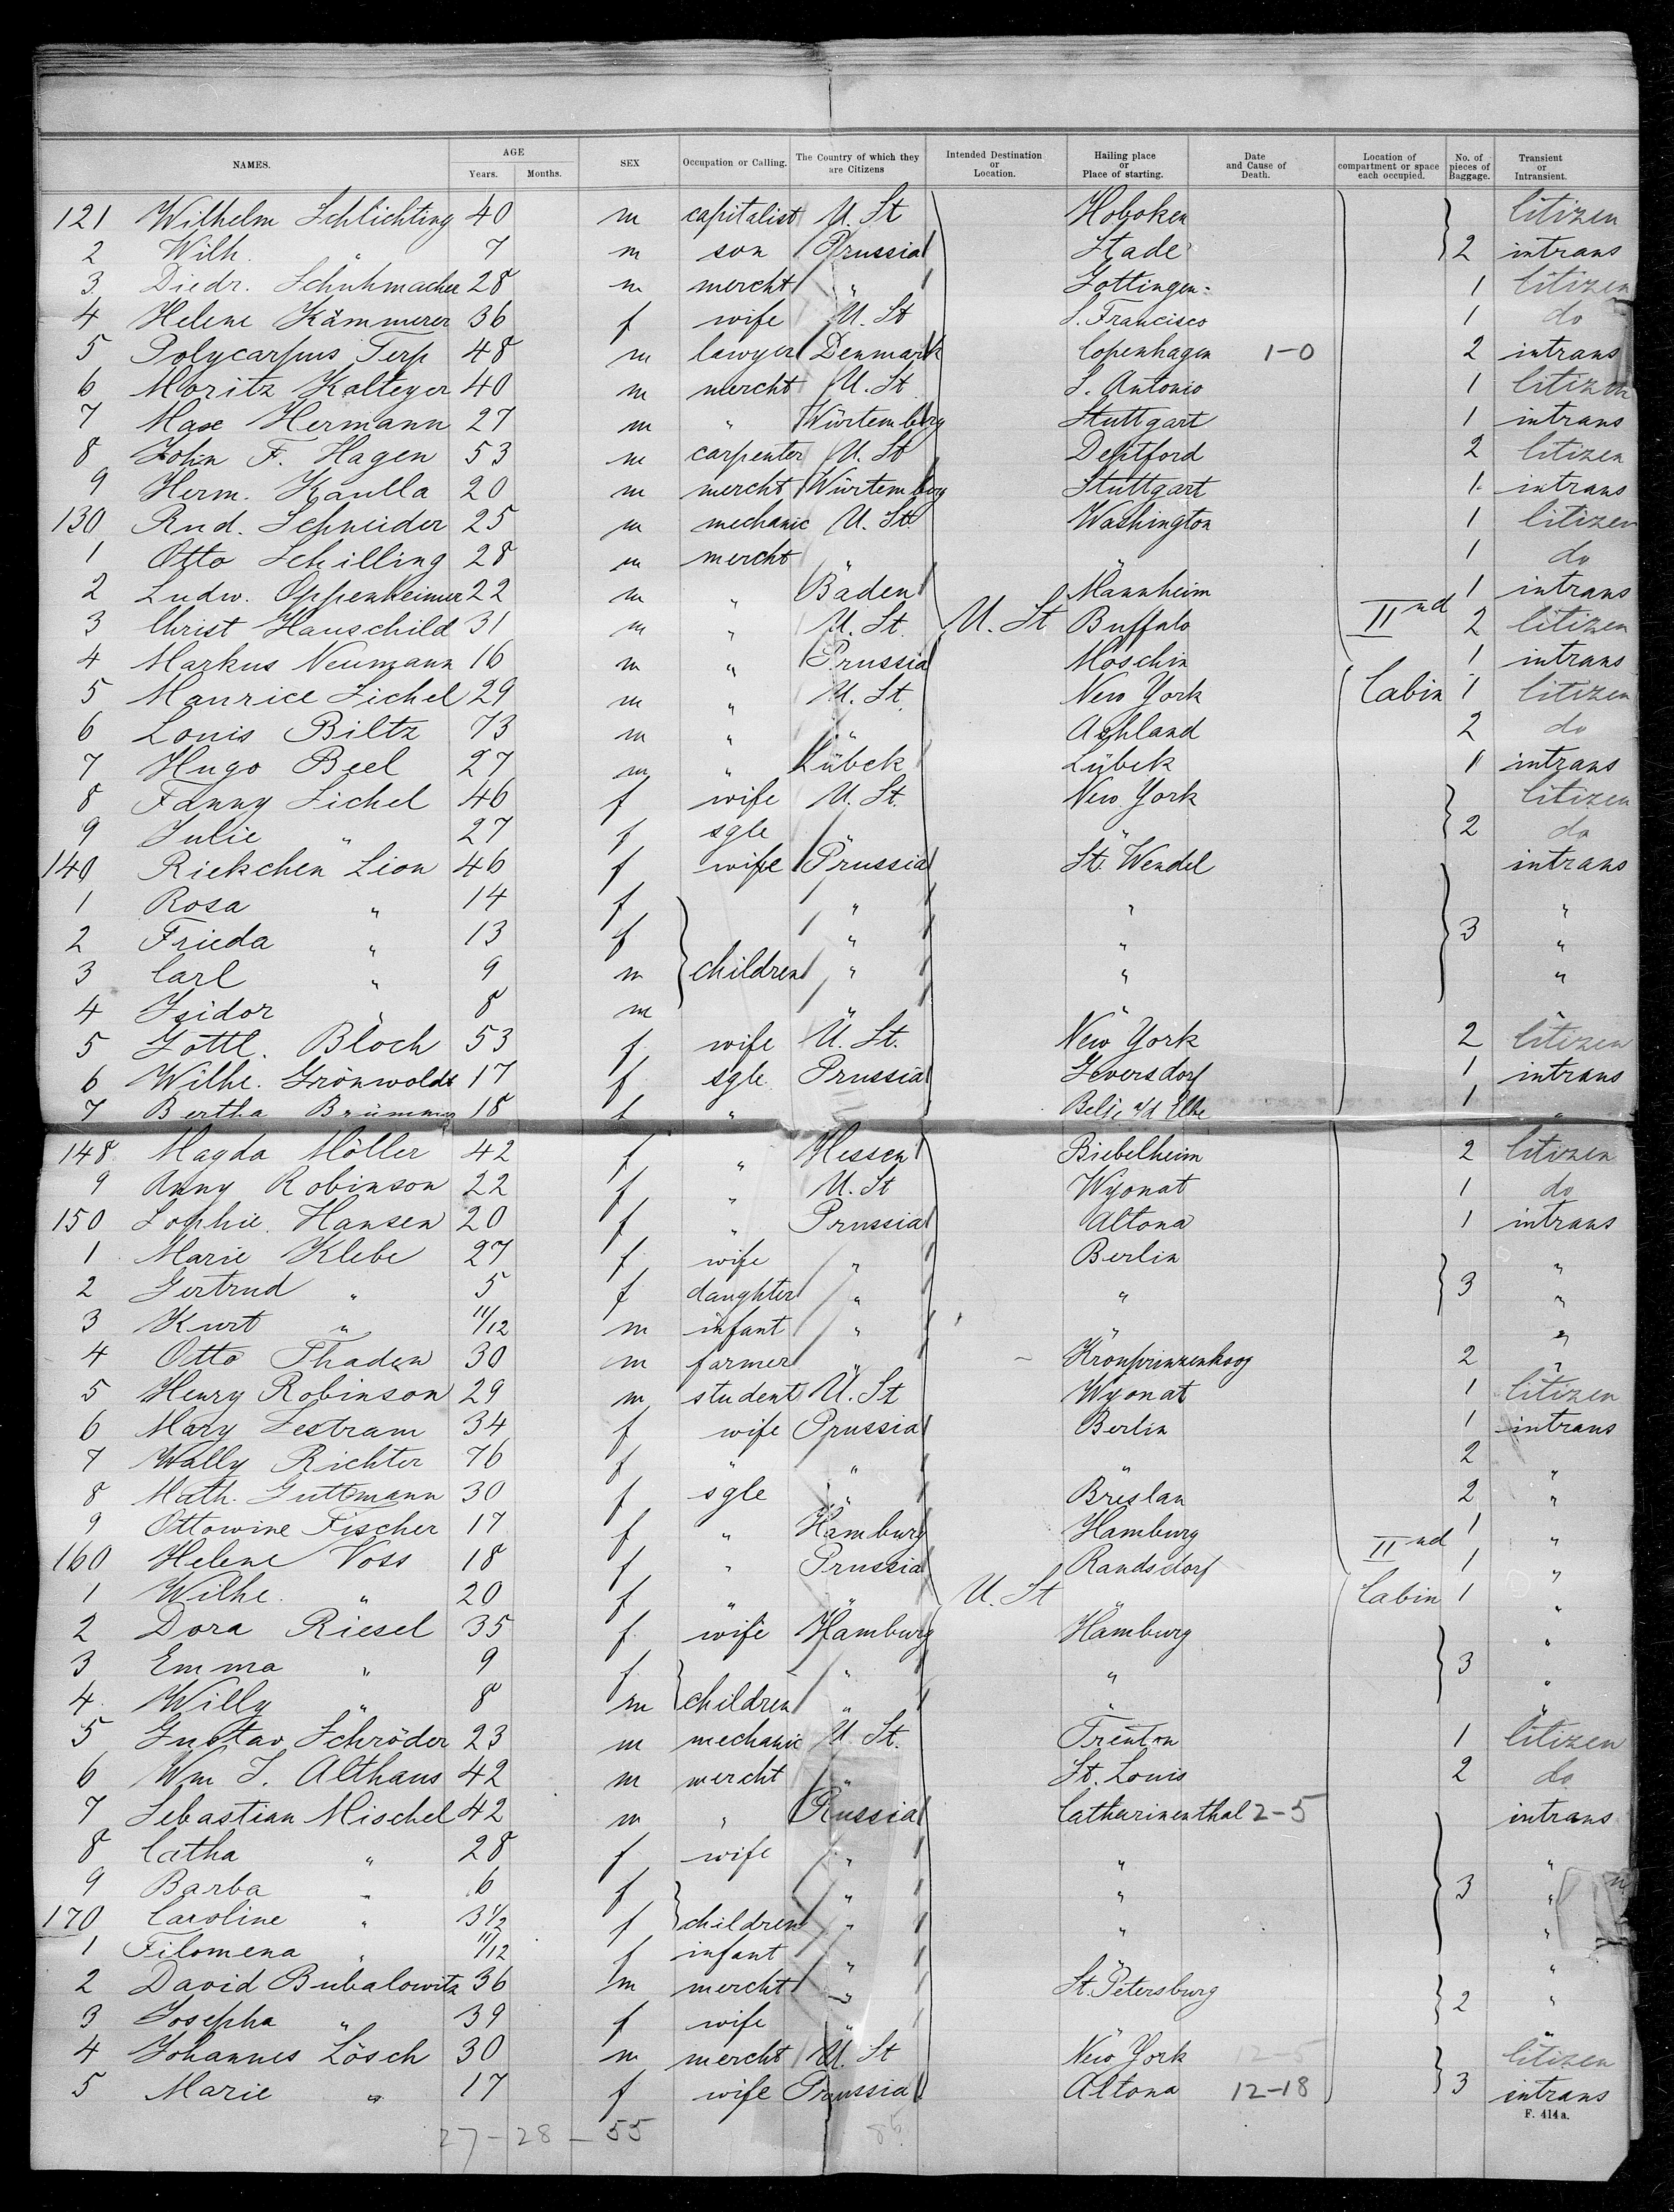 NAMES. AGE Years. Months. SEX Occupation or Calling. The Country of which they are Citizens Intended Destination or Location. Hailing place or Place of starting. Date and Cause of Death. Location of compartment or space each occupied. No. of pieces of Baggage. Transient or Intransient.
121 Wilhelm Schlichting 40 m capitalist U. St Hoboken Citizen
2 Wilh. " 7 m son Prussia Stade 2 intrans
3 Diedr. Schuhmacher 28 m mercht " Gottingen 1 Citizen
4 Helene Kämmerer 36 f wife U. St S. Francisco 1 do
5 Polycarpus Terp 48 m lawyer Denmark Copenhagen 1-0 2 intrans
6 Moritz Kalteyer 40 m mercht U. St S. Antonio 1 Citizen
7 Max Hermann 27 m " Würtemberg Stuttgart 1 intrans
8 John F. Hagen 53 m carpenter U. St Deptford 2 Citizen
9 Herm. Kaulla 20 m mercht Würtemberg Stuttgart 1 intrans
130 Rud. Schneider 25 m mechanic U. St Washington 1 Citizen
1 Otto Schilling 28 m mercht " " 1 do
2 Ludw. Oppenheimer 22 m " Baden Mannheim 1 intrans
3 Christ Hauschild 31 m " U. St. U. St Buffalo IInd 2 Citizen
4 Markus Neumann 16 m " Prussia Moschin 1 intrans
5 Maurice Sichel 29 m " U. St. New York Cabin 1 Citizen
6 Louis Biltz 73 m " " Ashland 2 do
7 Hugo Beel 27 m " Lübeck Lübek 1 intrans
8 Fanny Sichel 46 f wife U. St. New York Citizen
9 Julie " 27 f sgle " " 2 do
140 Riekchen Lion 46 f wife Prussia St. Wendel intrans
1 Rosa " 14 f " " "
2 Frieda " 13 f " " 3 "
3 Carl " 9 m children " " "
4 Isidor " 8 m " " "
5 Gottl. Bloch 53 f wife U. St. New York 2 Citizen
6 Wilhe. Grönwoldt 17 f sgle Prussia Geversdorf 1 intrans
7 Bertha 18 f " 1 "
148 Magda Möller 42 f " Hessen Biebelheim 2 Citizen
9 Anny Robinson 22 f " U. St Wyonat 1 do
150 Sophie Hansen 20 f " Prussia Altona 1 intrans
1 Marie Klebe 27 f wife " Berlin "
2 Gertrud " 5 f daughter " " 3 "
3 Kurt " 11/12 m infant " " "
4 Otto Thaden 30 m farmer " Kronprinzenkoog 2 "
5 Henry Robinson 29 m student U. St Wyonat 1 Citizen
6 Mary Lestram 34 f wife Prussia Berlin 1 intrans
7 Wally Richter 76 f " " " 2 "
8 Math. Guttmann 30 f sgle " Breslau 2 "
9 Ottowine Fischer 17 f " Hamburg Hamburg 1 "
160 Helene Voss 18 f " Prussia Randsdorf IInd 1 "
1 Wilhe. " 20 f " " U. St Cabin 1 "
2 Dora Riesel 35 f wife Hamburg Hamburg "
3 Emma " 9 f " " 3 "
4 Willy " 8 m children " " "
5 Gustav Schröder 23 m mechanic U. St. Trenton 1 Citizen
6 Wm J. Althaus 42 m mercht " St. Louis 2 do
7 Sebastian Mischel 42 m " Russia Catharinenthal 2-5 intrans
8 Catha " 28 f wife " " "
9 Barba " 6 f " " 3 "
170 Caroline " 3 1/2 f children " " "
1 Filomena " 11/12 f infant " " "
2 David Bubalowitz 36 m mercht " St. Petersburg "
3 Josepha " 39 f wife " " 2 "
4 Johannes Lösch 30 m mercht U. St New York 12-5 Citizen
5 Marie " 17 f wife Prussia Altona 12-18 3 intrans
F. 414 a.
27-28-55 86